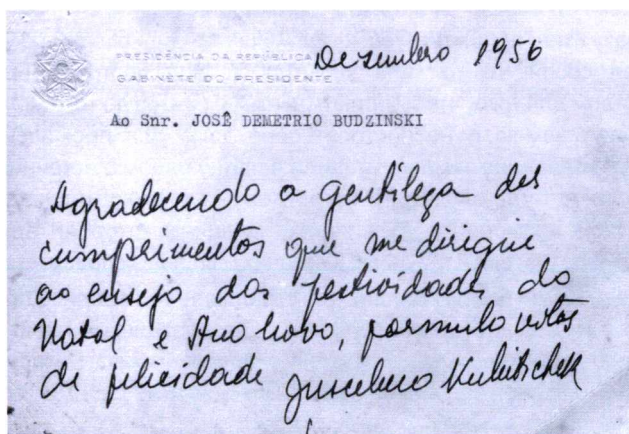 PRESIDÊNCIA DA REPÚBLICA
GABINETE DO PRESIDENTE
Dezembro 1956
Ao Snr. JOSÊ DEMETRIO BUDZINSKI
Agradecendo a gentileza dos
cumprimentos que me dirigiu
ao ensejo das festividades do
Natal e Ano Novo, formulo votos
de felicidade Juscelino Kubitschek